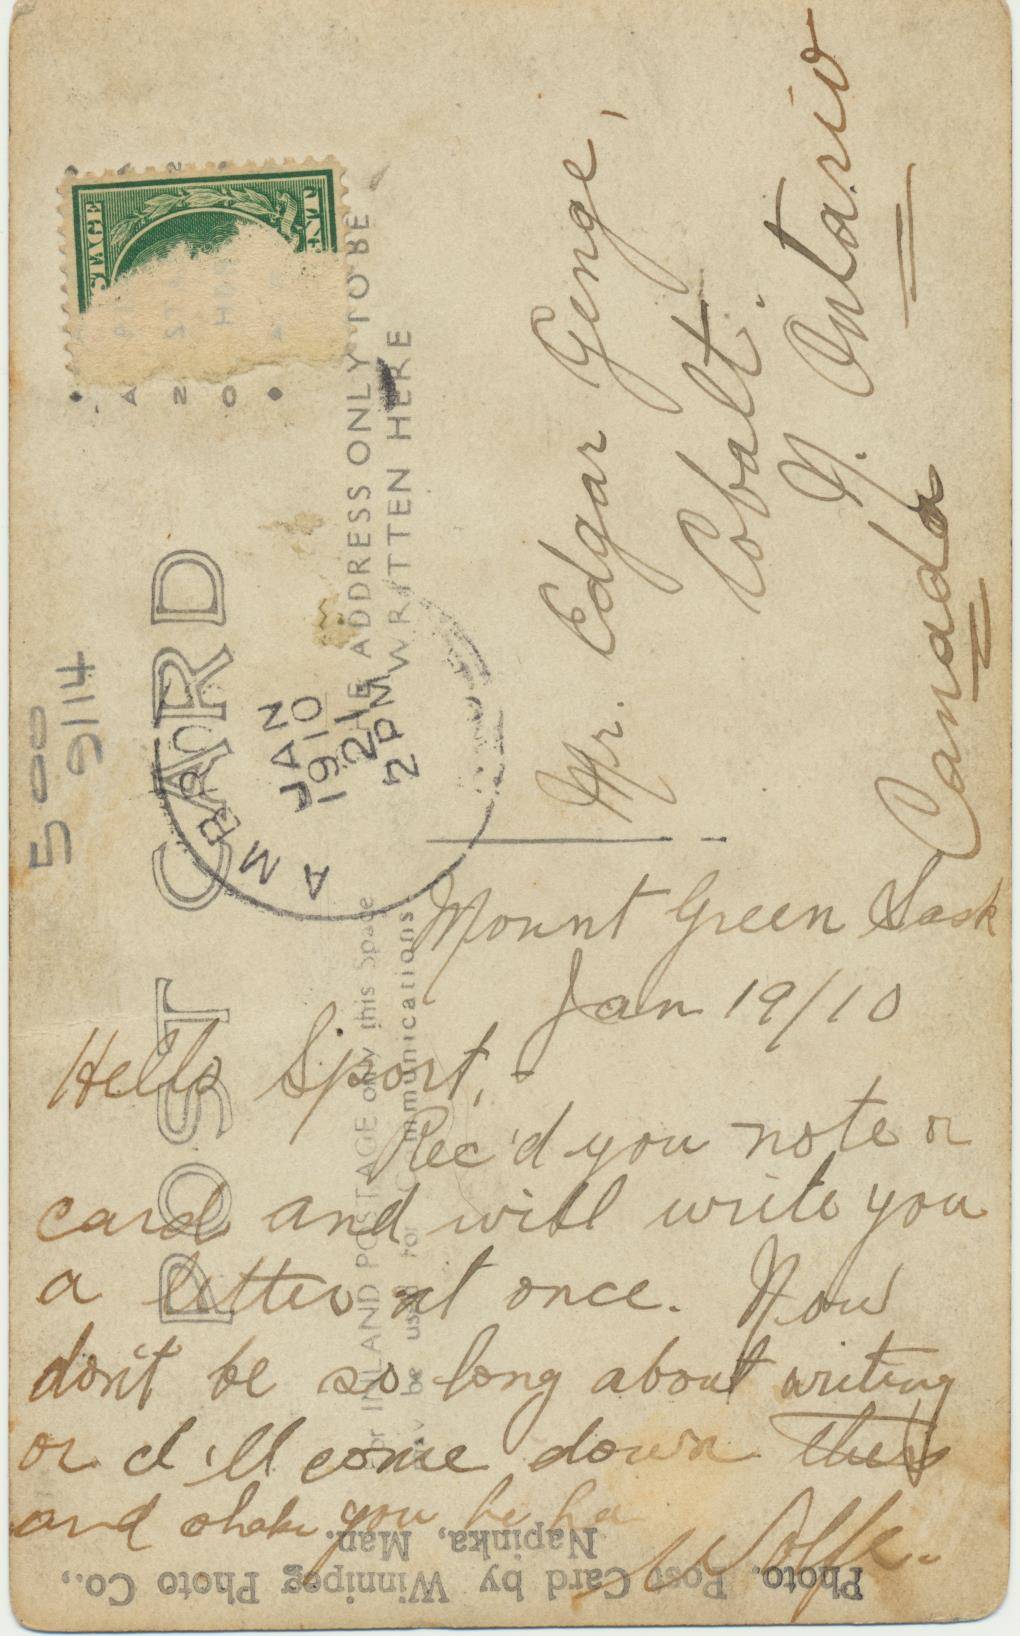 5 00
9114
POST CARD
THE ADDRESS ONLY TO BE
WRITTEN HERE
For INLAND POSTAGE only this Space
may be used for Communications.
JAN
1910
21
2 PM
Mr. Edgar Genge,
Cobalt.
N. Ontario
Canada
Mount Green Sask
Jan 19/10
Hello Sport, -
Rec'd you note or
card and will write you
a letter at once. Now
don't be so long about writing
or I'll come down there
and shake you he ha
Wolfe.
Photo. Post Card by Winnipeg Photo Co.,
Napinka, Man.